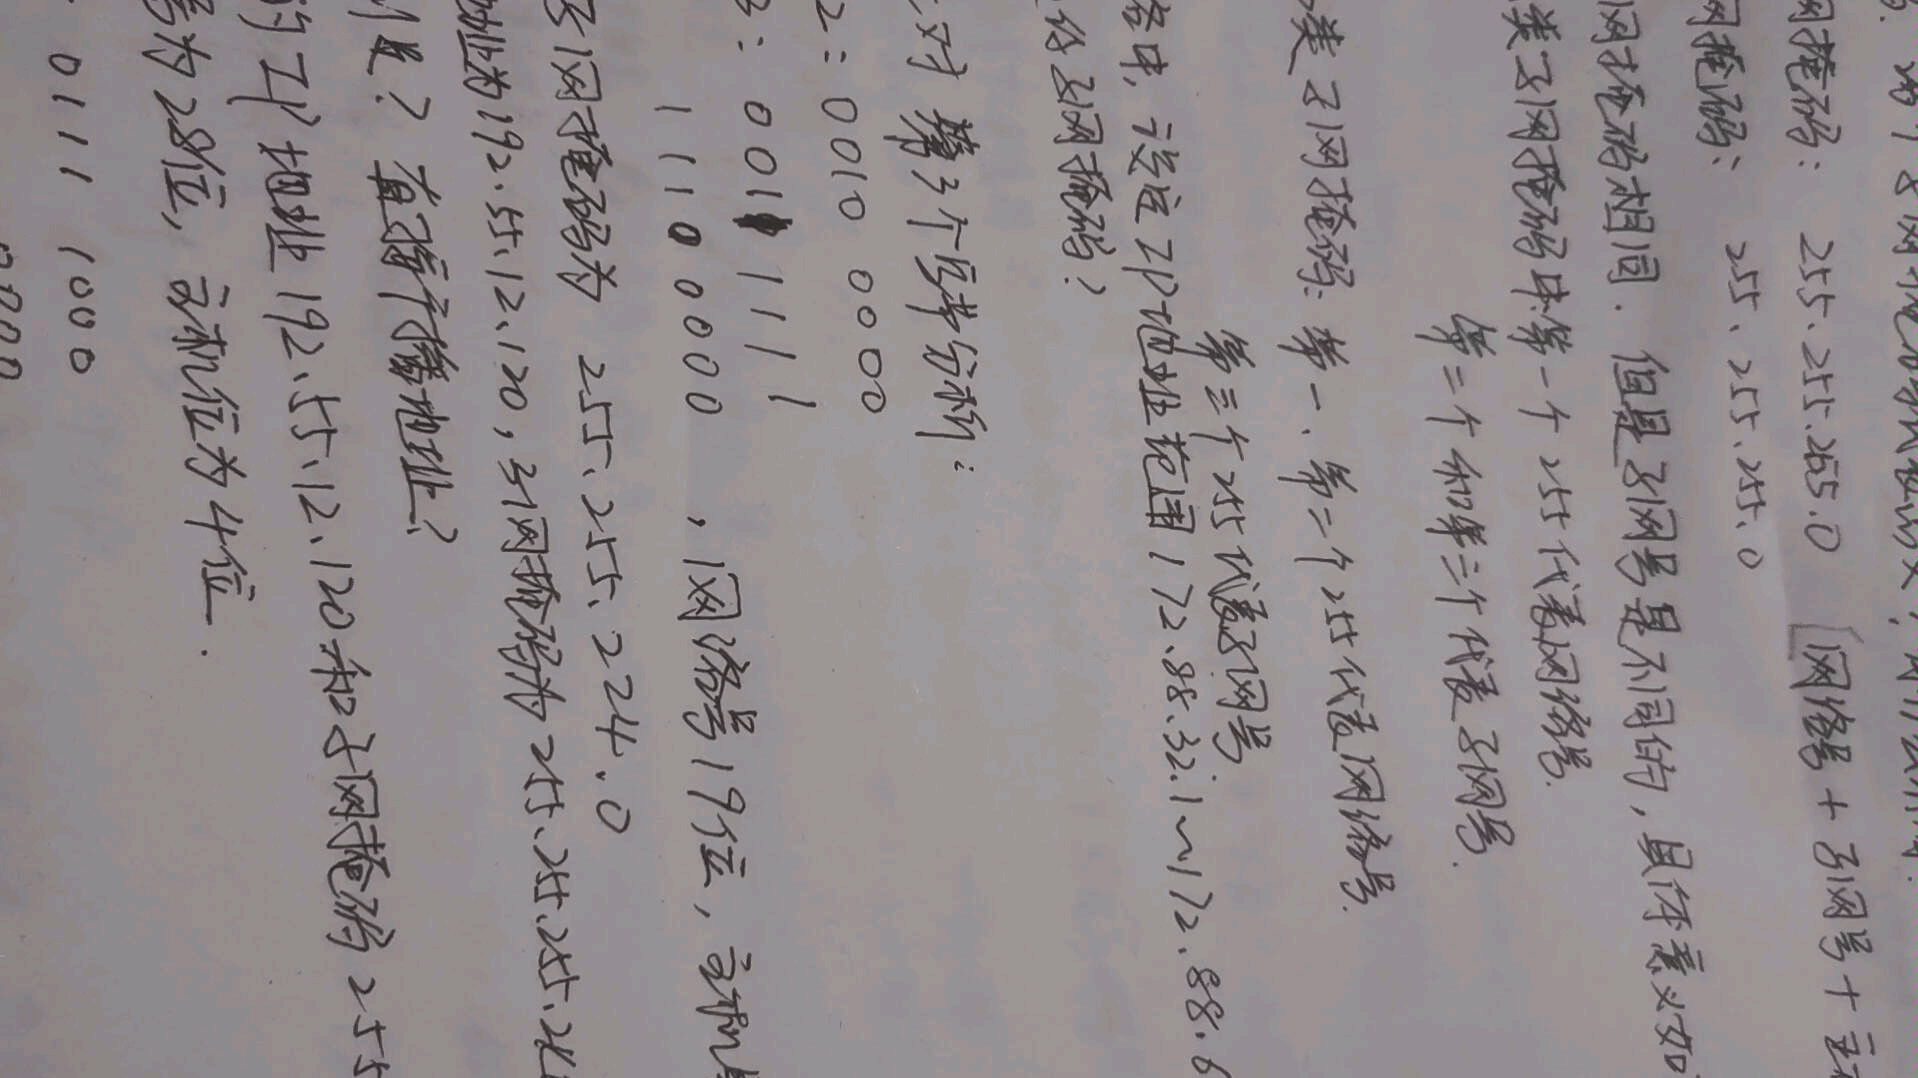 网掩码: 255.255.255.0 [网络号 + 子网号 + 主
网掩码: 255.255.255.0
网掩码相同. 但是子网号是不同的, 具体意义如
类子网掩码中第一个255代表网络号.
第二个和第三个代表子网号.
类子网掩码: 第一、第二个255代表网络号.
第三个255代表子网号
络中, 设定IP地址范围172.88.32.1~172.88.6
子网掩码?
对第3个字节分析:
2: 0010 0000
: 001 1111
1110 0000 , 网络号19位, 主机
子网掩码为 255.255.224.0
地址为192.55.12.120, 子网掩码为255.255.255.24
? 直接广播地址?
的IP地址192.55.12.120和子网掩码255
号为28位, 主机位为4位.
0111 1000
0000